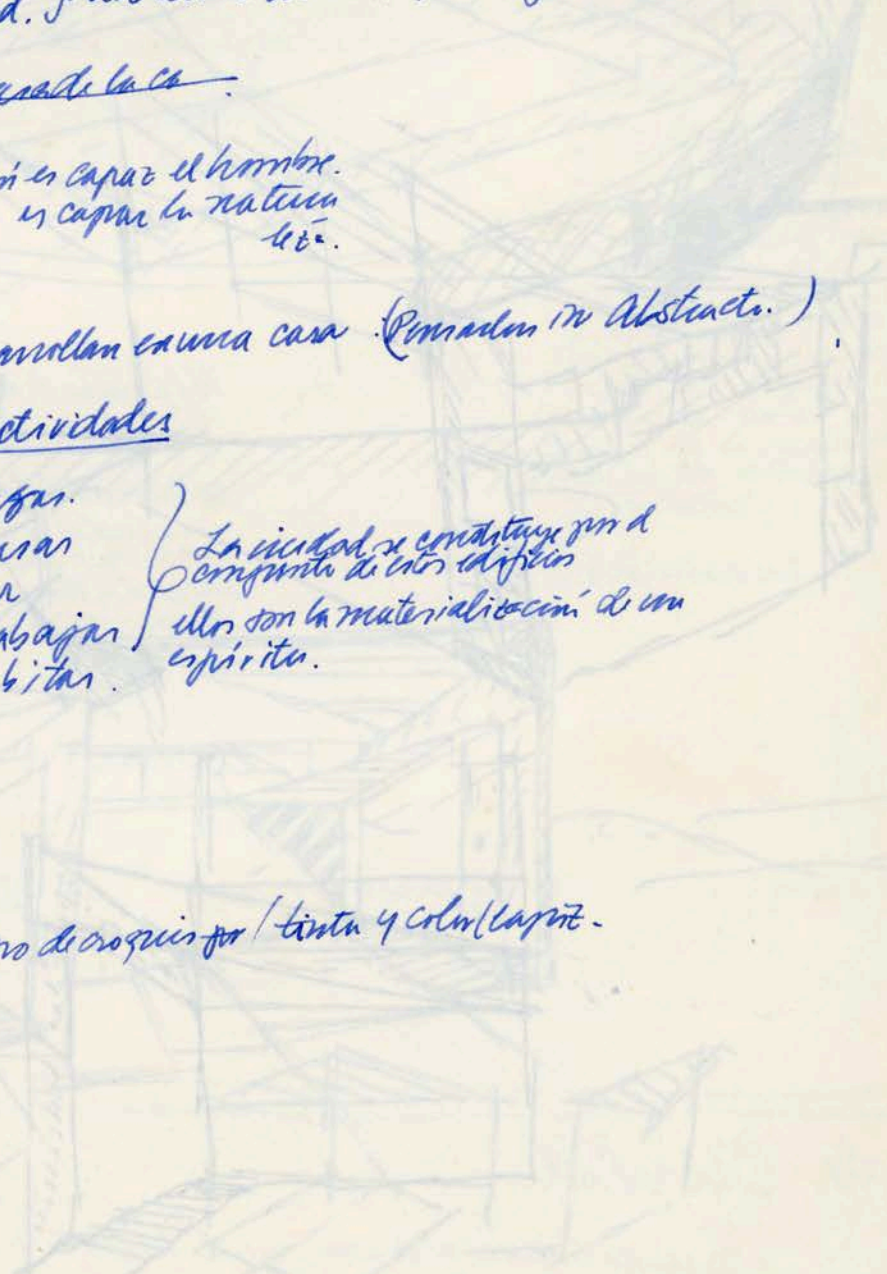 de la ca
es capaz el hombre.
es capaz la natura
leza.
arrollan en una casa. (Pensarlas in Abstracto.)
ctividades
gar.
usar
r
abajar
bitar.
La ciudad se constituye por el
conjunto de estos edificios
ellos son la materialización de un
espíritu.
ro de croquis por / tinta y color/lapiz.